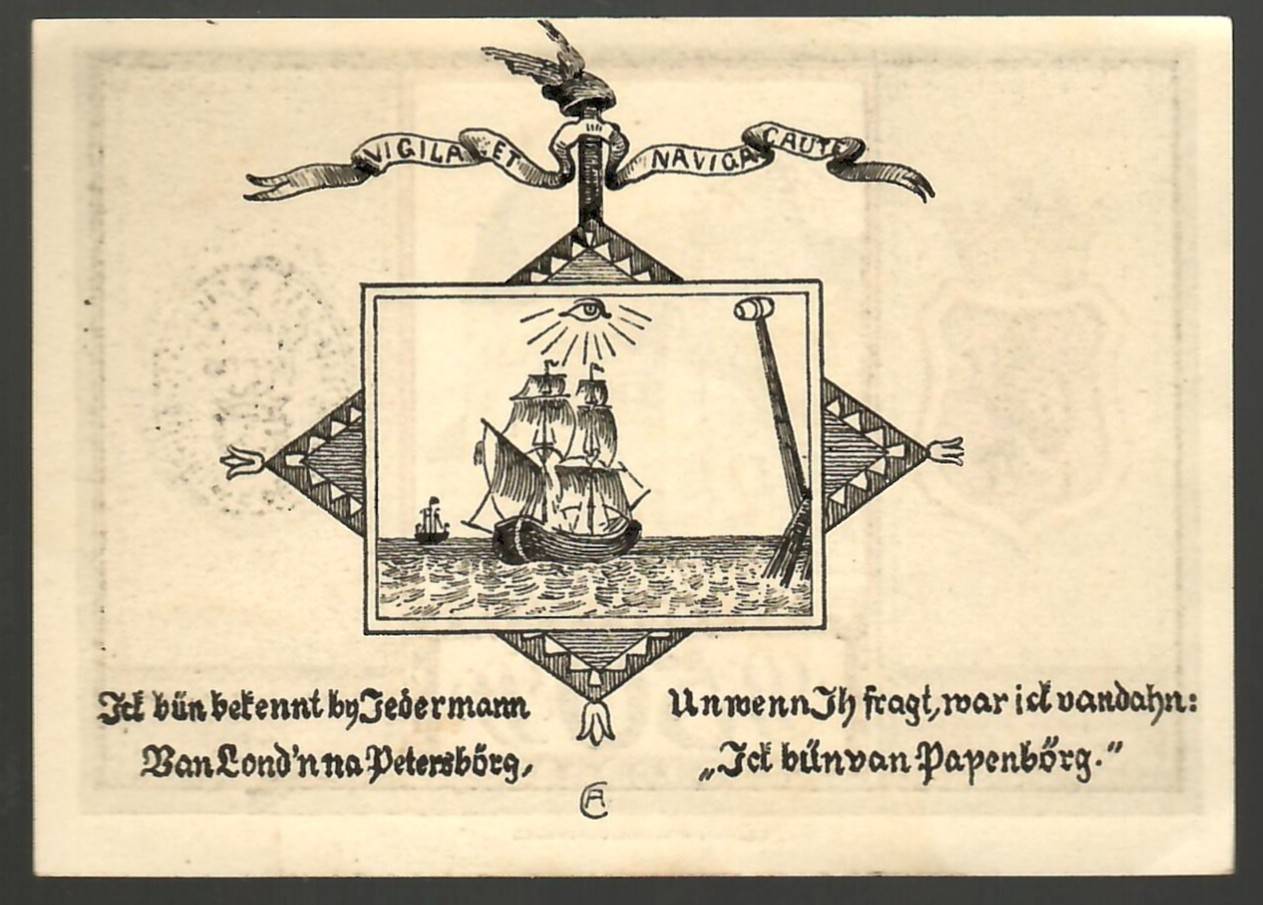 VIGILA ET NAVIGA CAUTE
Ick bün bekennt by Jedermann
Van Lond'n na Petersbörg,
Un wenn Jh fragt, war ick van dahn:
„Ick bün van Papenbörg."
CA